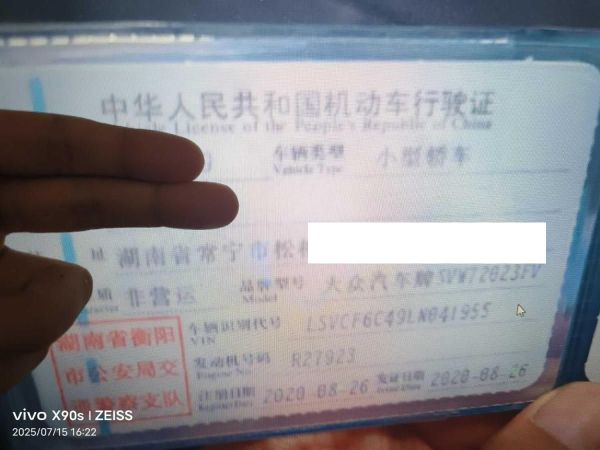 中华人民共和国机动车行驶证
License of the People's Republic of China
车辆类型 小型轿车
Vehicle Type
址 湖南省常宁市松柏
质 非营运 品牌型号 大众汽车牌SVW72023FV
Model
湖南省衡阳
市公安局交
通警察支队
车辆识别代号 LSVCF6C49LN041955
VIN
发动机号码 R27923
Engine No.
注册日期 2020-08-26 发证日期 2020-08-26
Register Date Issue Date
vivo X90s | ZEISS
2025/07/15 16:22